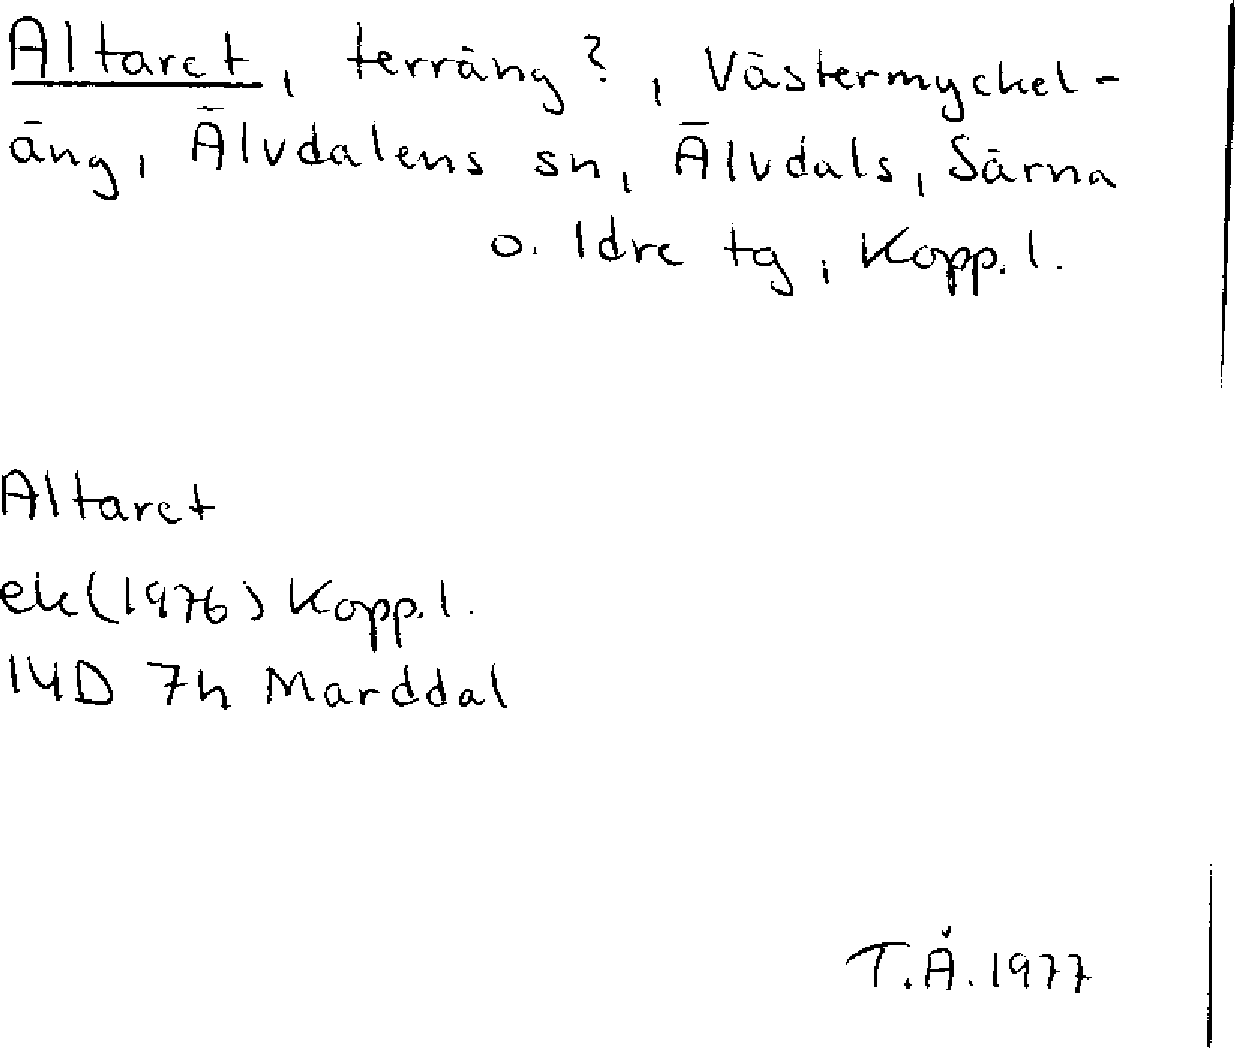 Altaret, terräng?, Västermyckel-
äng, Älvdalens sn, Älvdals, Särna
o. Idre tg, Kopp. l.
Altaret
ek (1976) Kopp. l.
14D 7h Marddal
T.Å. 1977